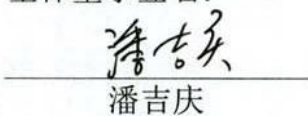 潘吉庆
潘吉庆